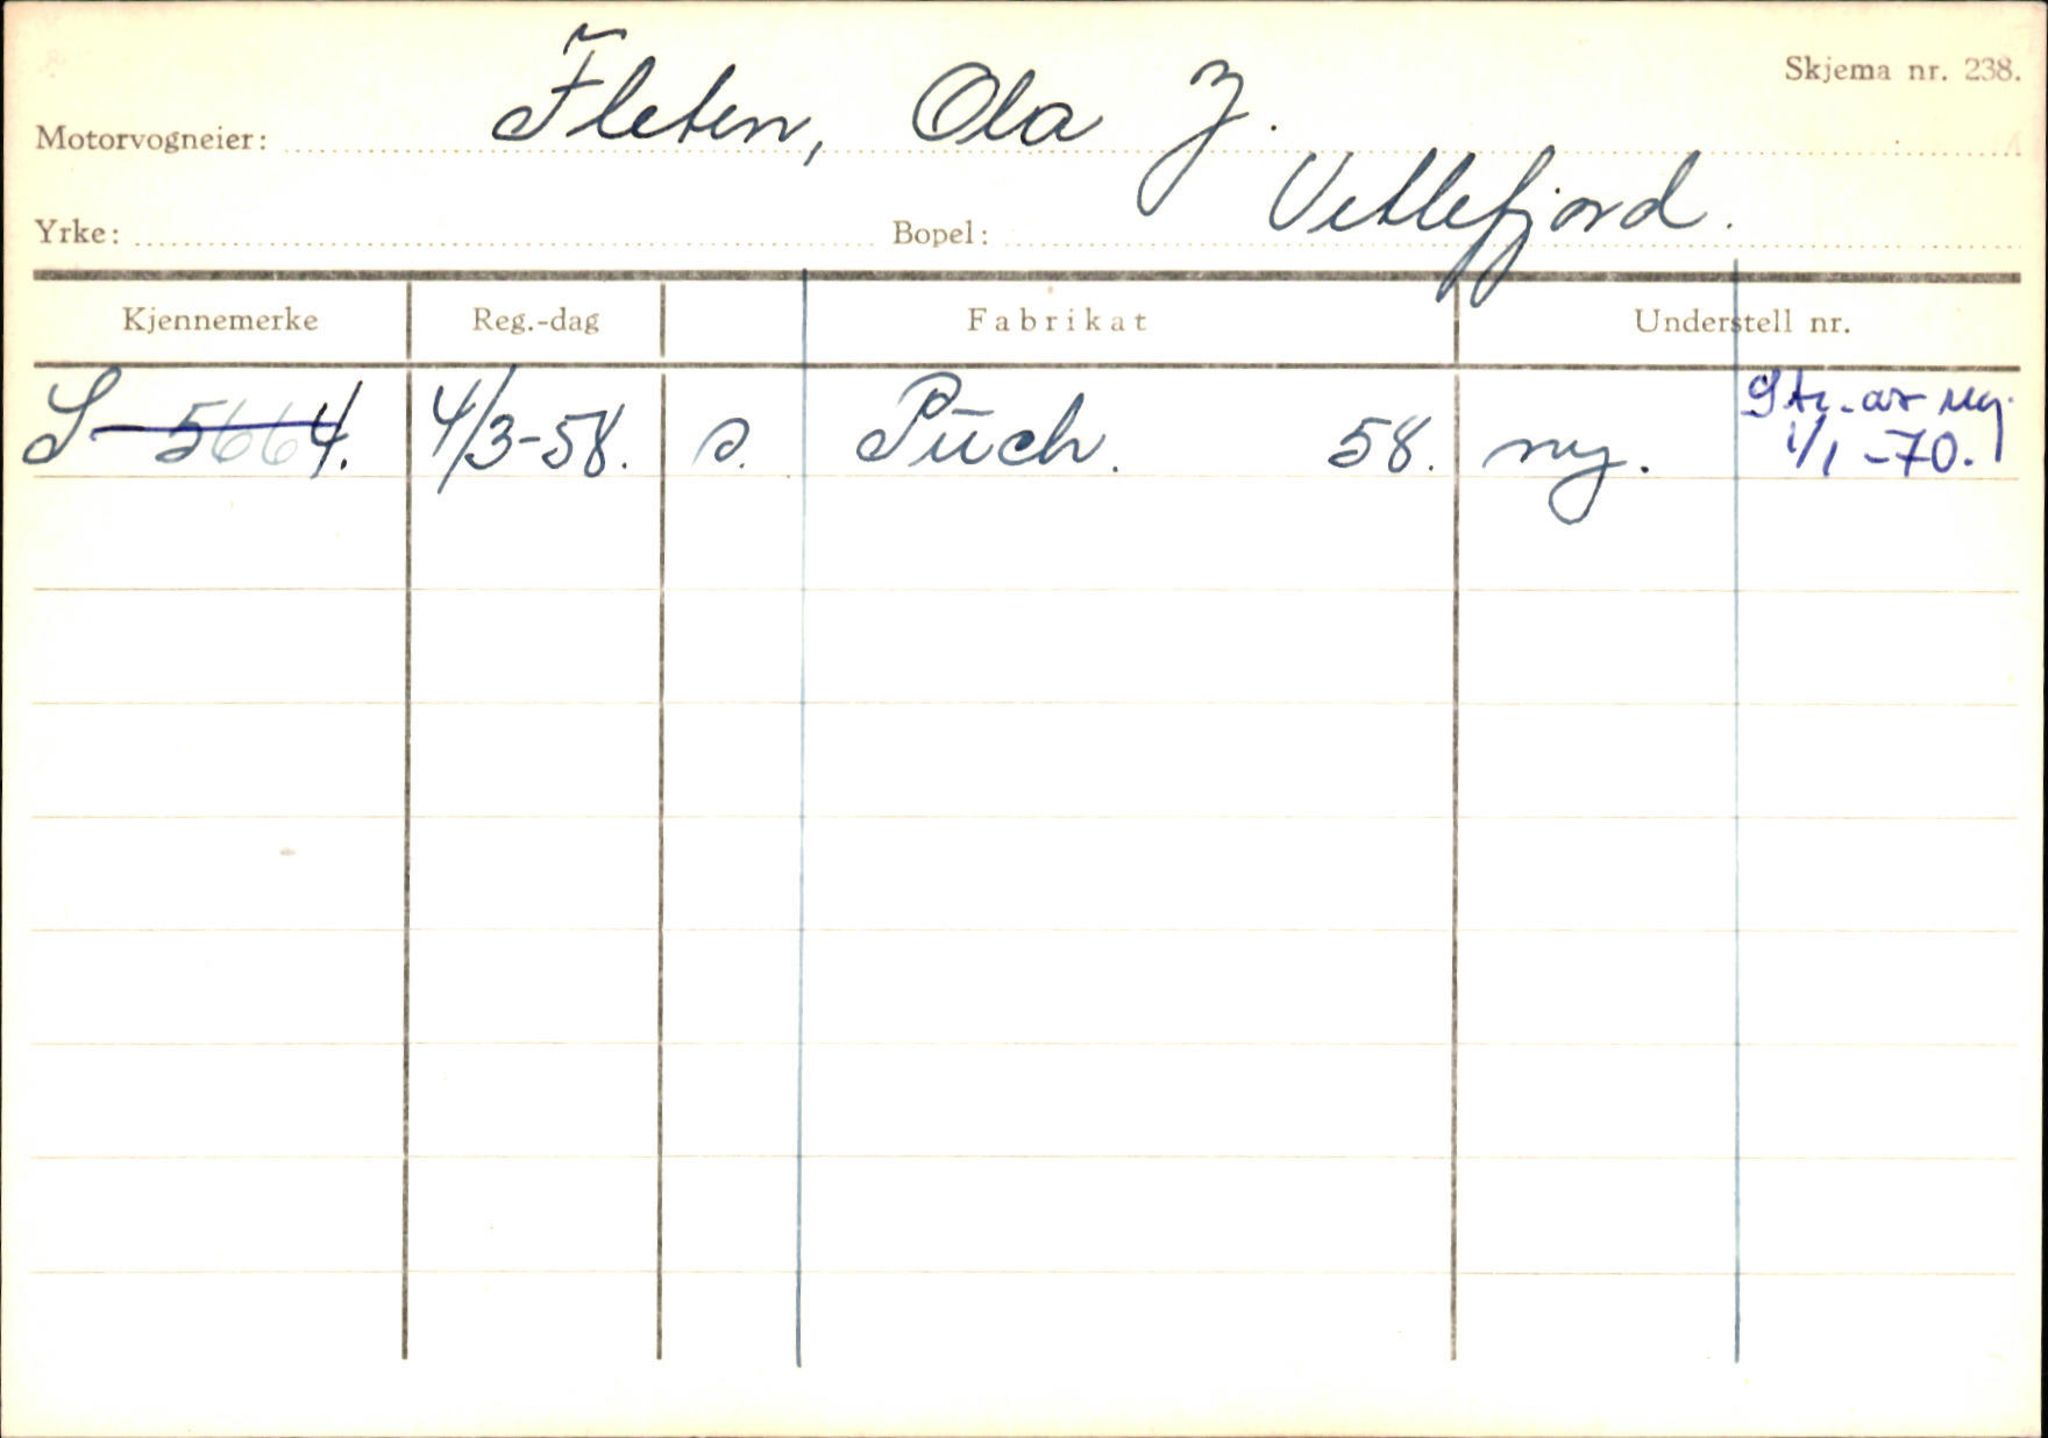 Skjema nr. 238.
Motorvogneier: Fleten, Ola J.
Yrke: Bopel: Vetlefjord.
Kjennemerke Reg.-dag Fabrikat Understell nr.
S-5664. 4/3-58. s. Puch. 58. ny. Str. av reg.
1/1-70.